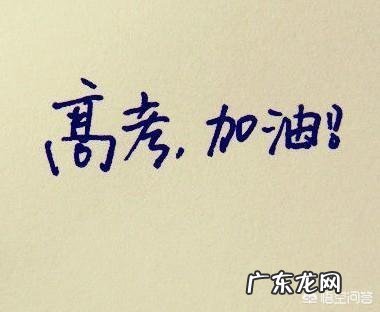 高考，加油!!
广东龙网
悟空问答